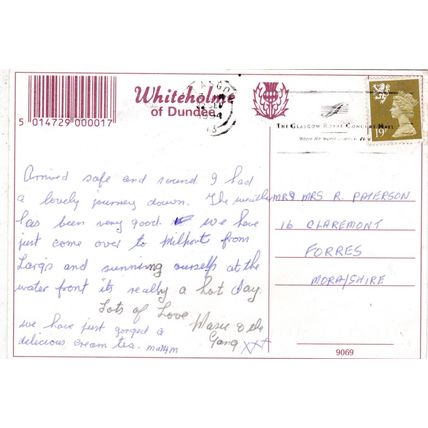 Whiteholme
of Dundee
5 014729 000017
THE GLASGOW ROYAL CONCERT HALL
19
Arrived safe and sound I had
a lovely journey down. The weather
has been very good. We have
just come over to Millport from
Largs and sunning ourselfs at the
water front its really a hot day.
Lots of Love
& the
Gang xxx
we have just gorged a
delicious cream tea.
MR & MRS R. PATERSON
16 CLAREMONT
FORRES
MORAYSHIRE
9069